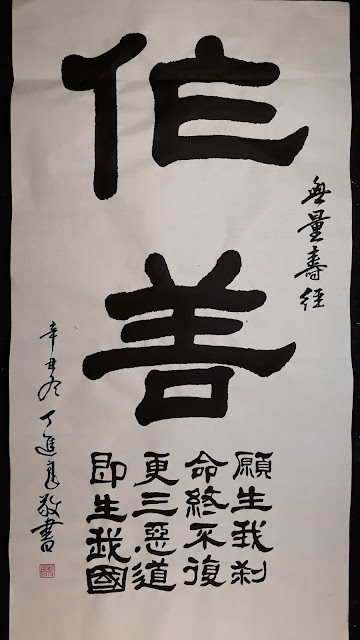 無量壽經
作善
願生我刹
命終不復
更三惡道
即生我國
辛丑冬 丁進 敬書